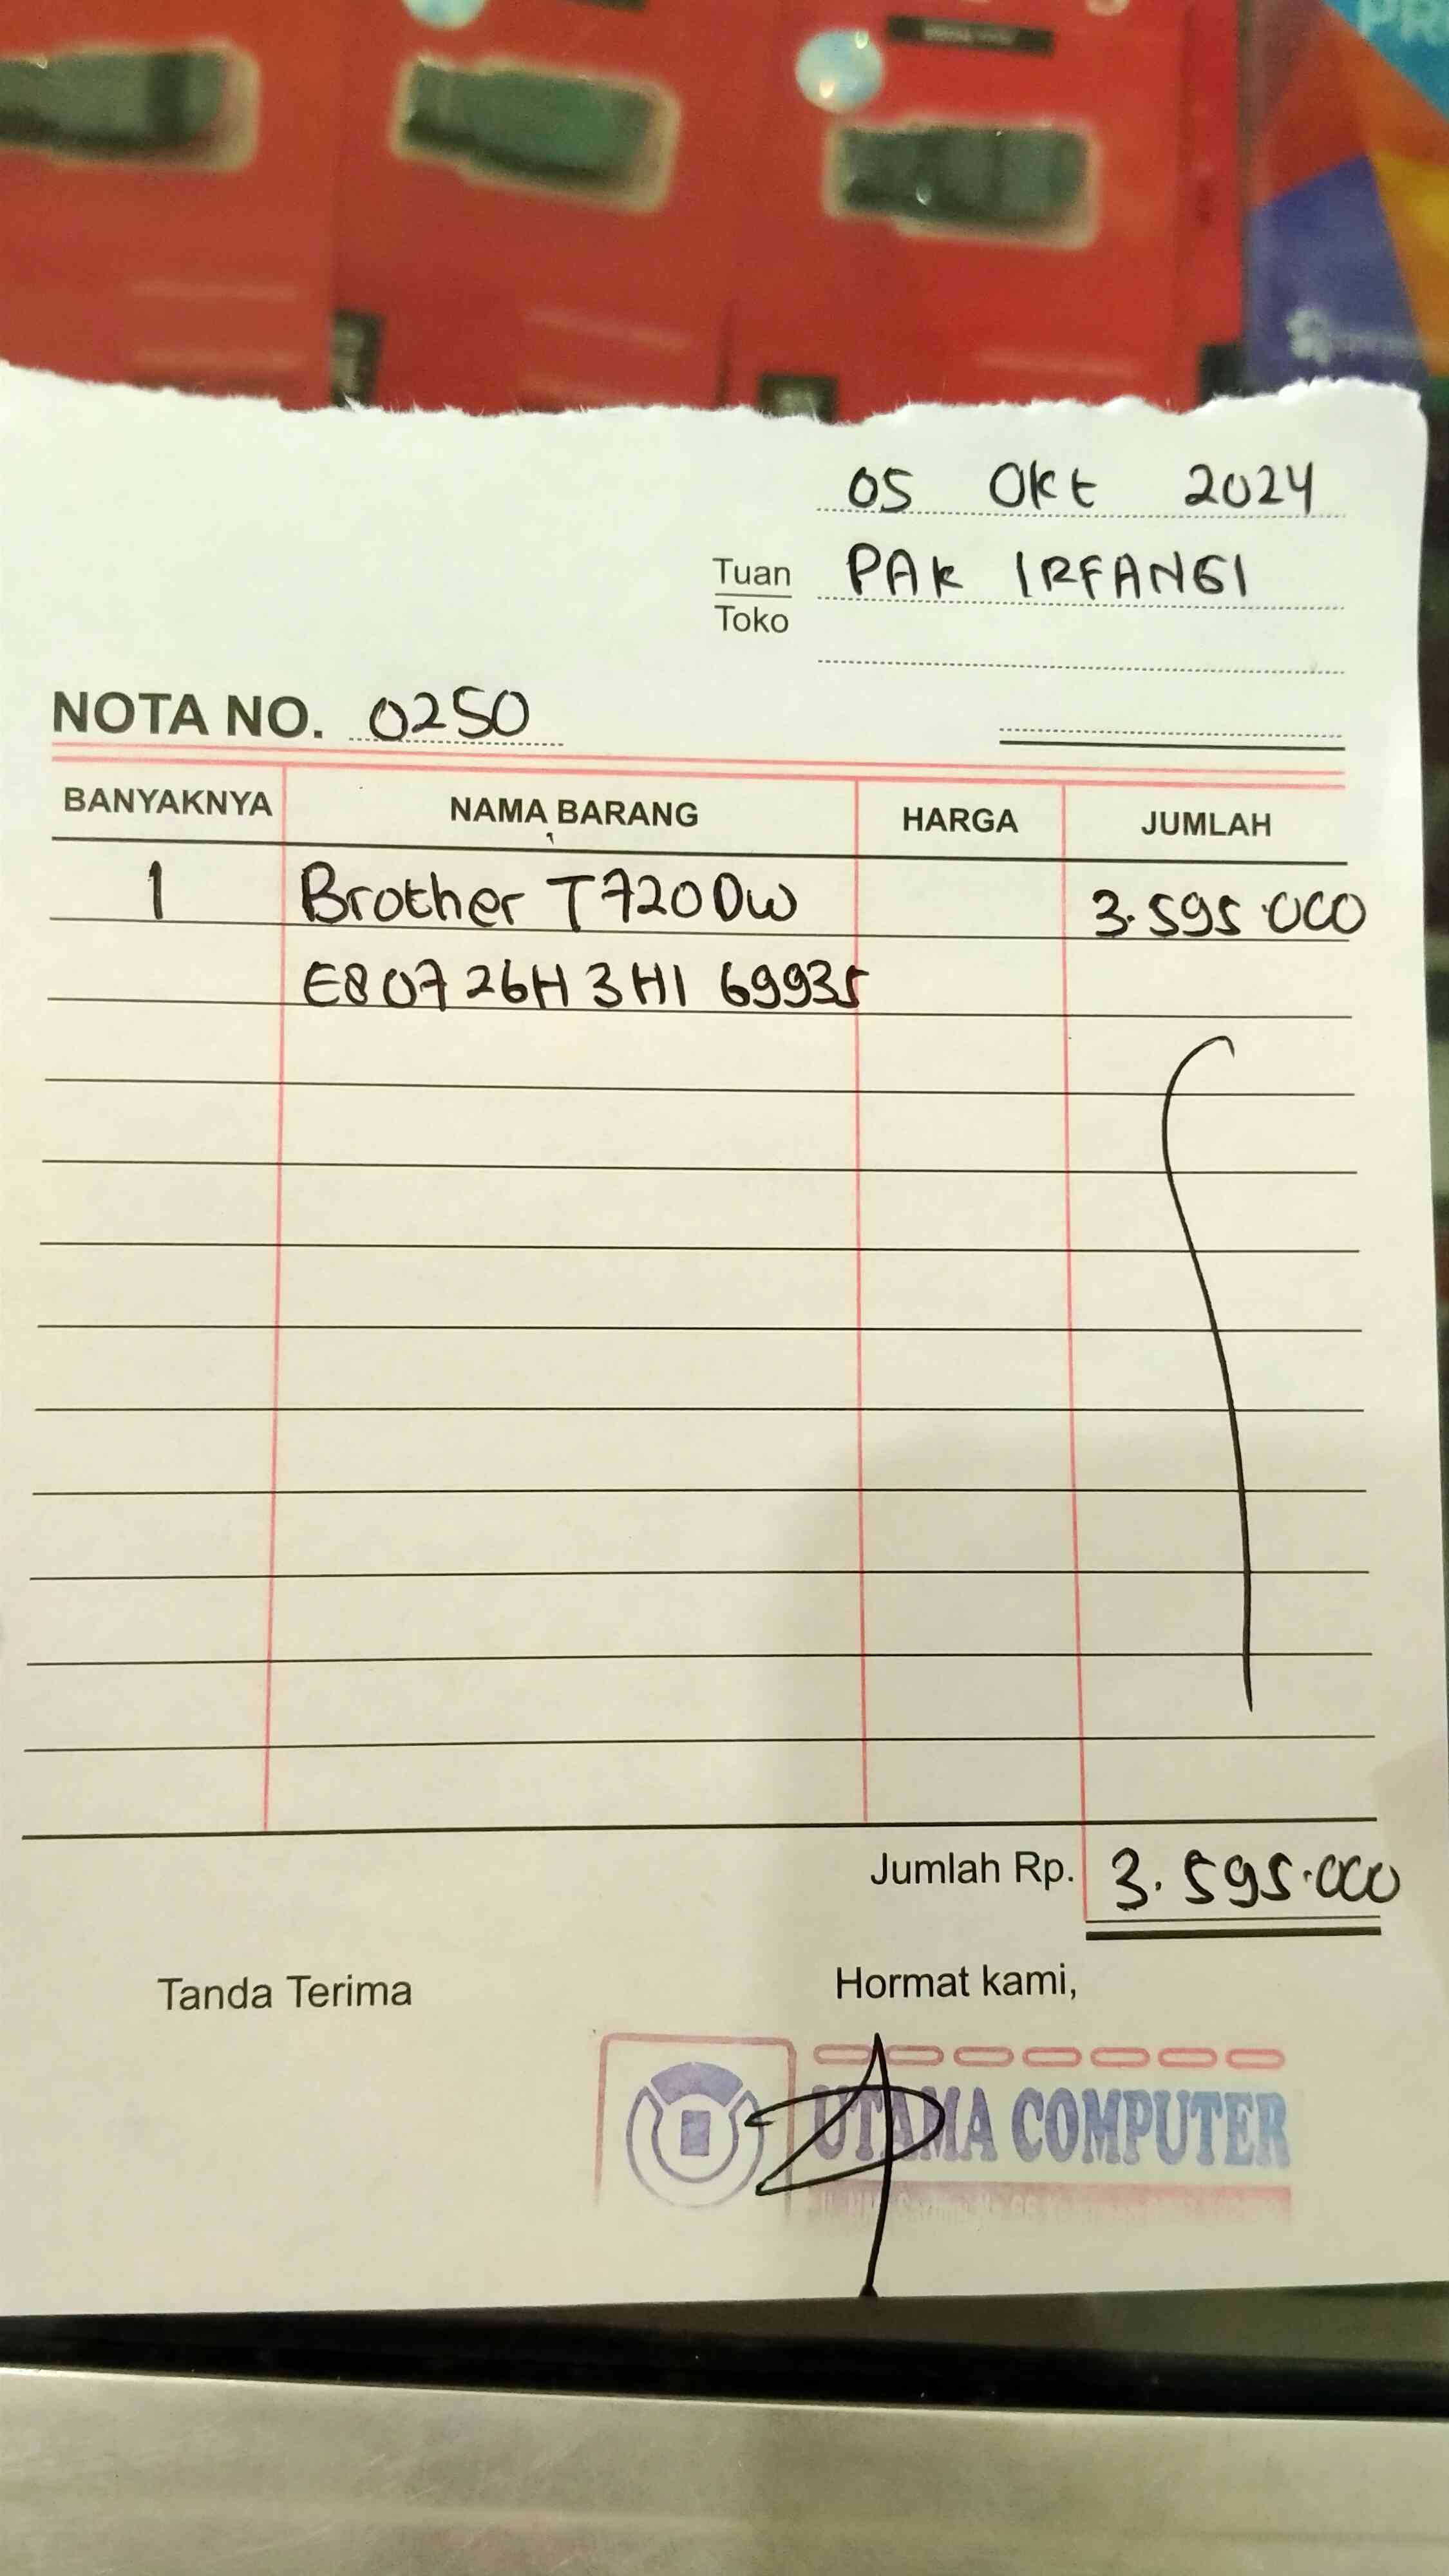 05 Okt 2024
Tuan PAK IRFANGI
Toko
NOTA NO. 0250
BANYAKNYA NAMA BARANG HARGA JUMLAH
1 Brother T720DW 3.595.000
E80726H3H169935
Jumlah Rp. 3.595.000
Tanda Terima Hormat kami,
UTAMA COMPUTER